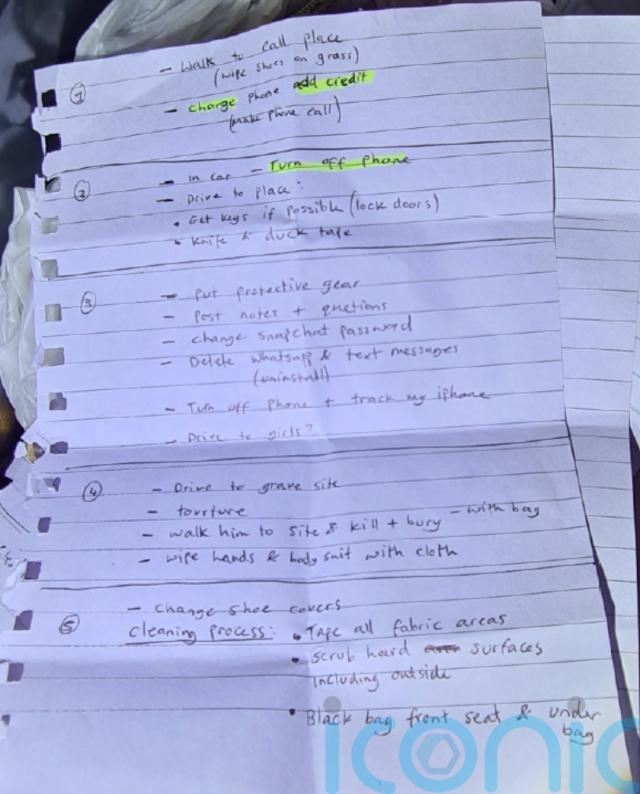 ① - Walk to call place
(wipe shoes on grass)
- charge phone add credit
(make phone call)
② - In car - Turn off phone
- Drive to place:
• Get keys if possible (lock doors)
• Knife & duck tape
③ - Put protective gear
- Post notes + quetions
- change snapchat password
- Delete whatsapp & text messages
(uninstall)
- Turn off phone + track my iphone
- Drive to girls?
④ - Drive to grave site
- tourture
- walk him to site & kill + bury - with bag
- wipe hands & body suit with cloth
- change shoe covers
⑤ cleaning process: • Tape all fabric areas
• scrub hard surfaces
including outside
• Black bag front seat & under
bag
iconic